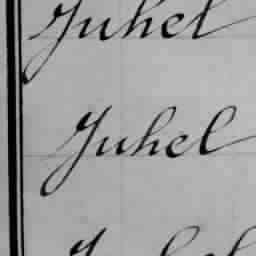 Juhel
Juhel